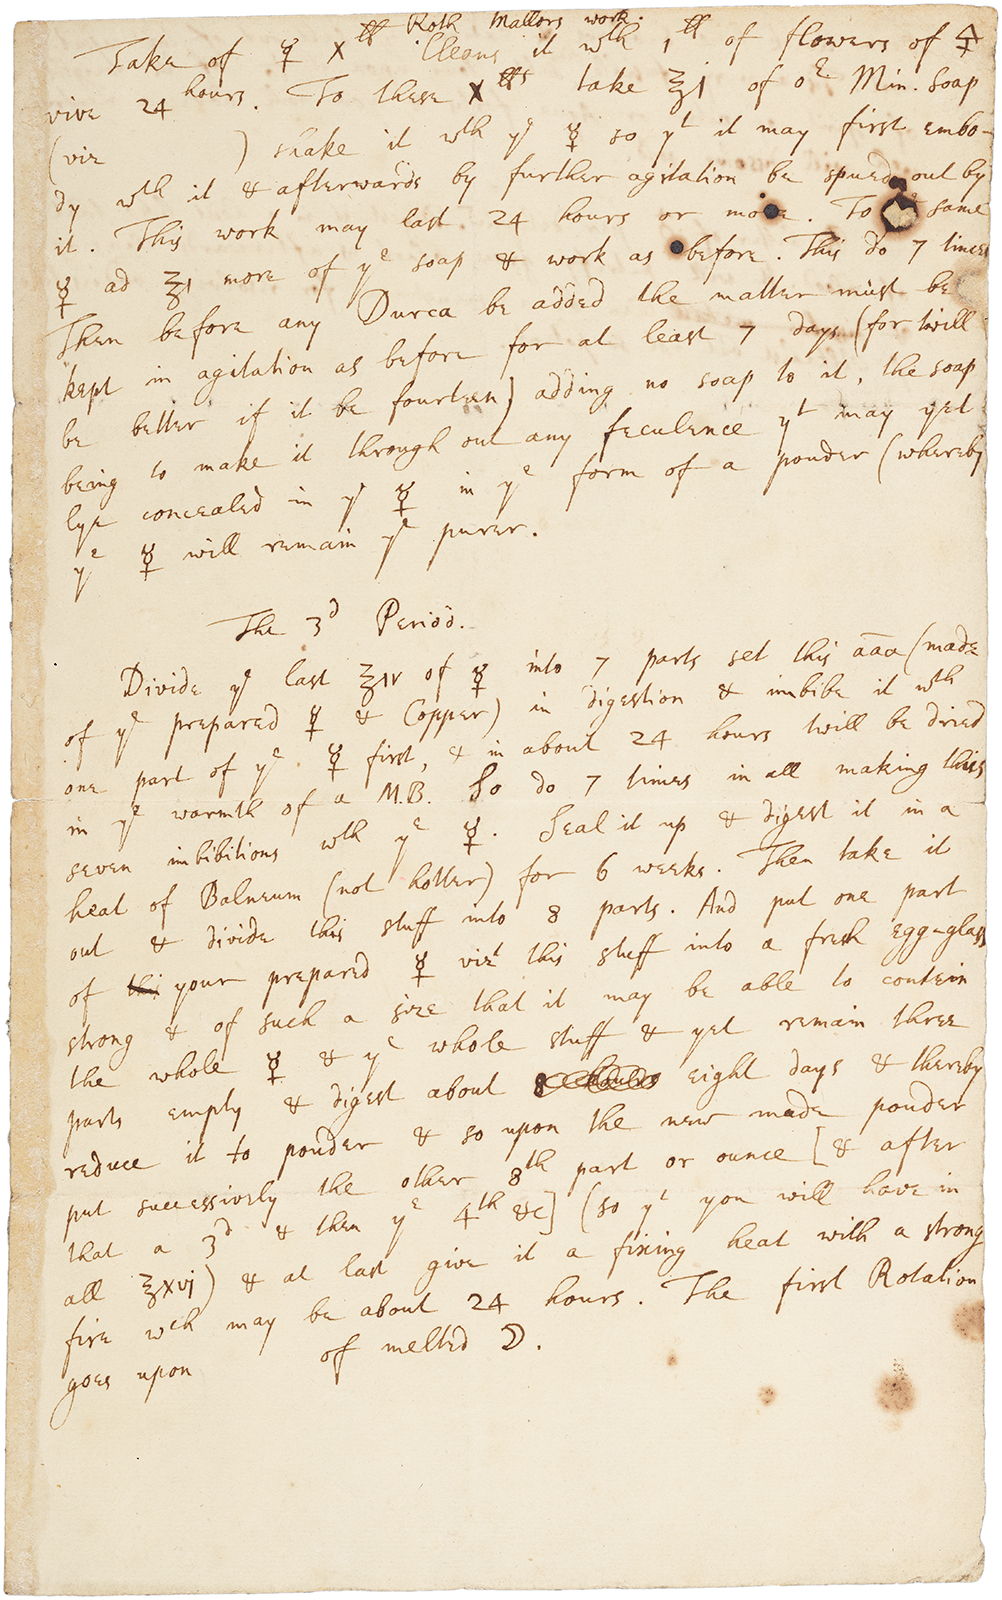 Roth Mallors work.
Take of ☿ X ℔ Cleans it wth 1 ℔ of flowers of 🜍
vive 24 hours. To these X ℔s take ℥1 of oe Min. soap
(viz ) shake it wth ye ☿ so yt it may first embo-
dy wth it & afterwards by further agitation be spued out by
it. This work may last 24 hours or more. To same
☿ ad ℥1 more of ye soap & work as before. This do 7 times
Then before any Durca be added the matter must be
kept in agitation as before for at least 7 days (for twill
be better if it be fourteen) adding no soap to it, the soap
being to make it through out any feculence yt may yet
lye concealed in ye ☿ in ye form of a pouder (whereby
ye ☿ will remain ye purer.
The 3d Period.
Divide ye last ℥iv of ☿ into 7 parts set this āāa (made
of ye prepared ☿ & Copper) in digestion & imbibe it wth
one part of ye ☿ first, & in about 24 hours twill be dried
in ye warmth of a M.B. So do 7 times in all making this
seven imbibitions wth ye ☿. Seal it up & digest it in a
heat of Balneum (not hotter) for 6 weeks. Then take it
out & divide this stuff into 8 parts. And put one part
of this your prepared ☿ vizt this stuff into a fresh egg-glass
strong & of such a size that it may be able to contein
the whole ☿ & ye whole stuff & yet remain three
parts empty & digest about 8 eight days & thereby
reduce it to pouder & so upon the new made pouder
put successively the other 8th part or ounce [& after
that a 3d & then ye 4th &c] (so yt you will have in
all ℥xvj) & at last give it a fixing heat with a strong
fire wch may be about 24 hours. The first Rotation
goes upon of melted ☽.